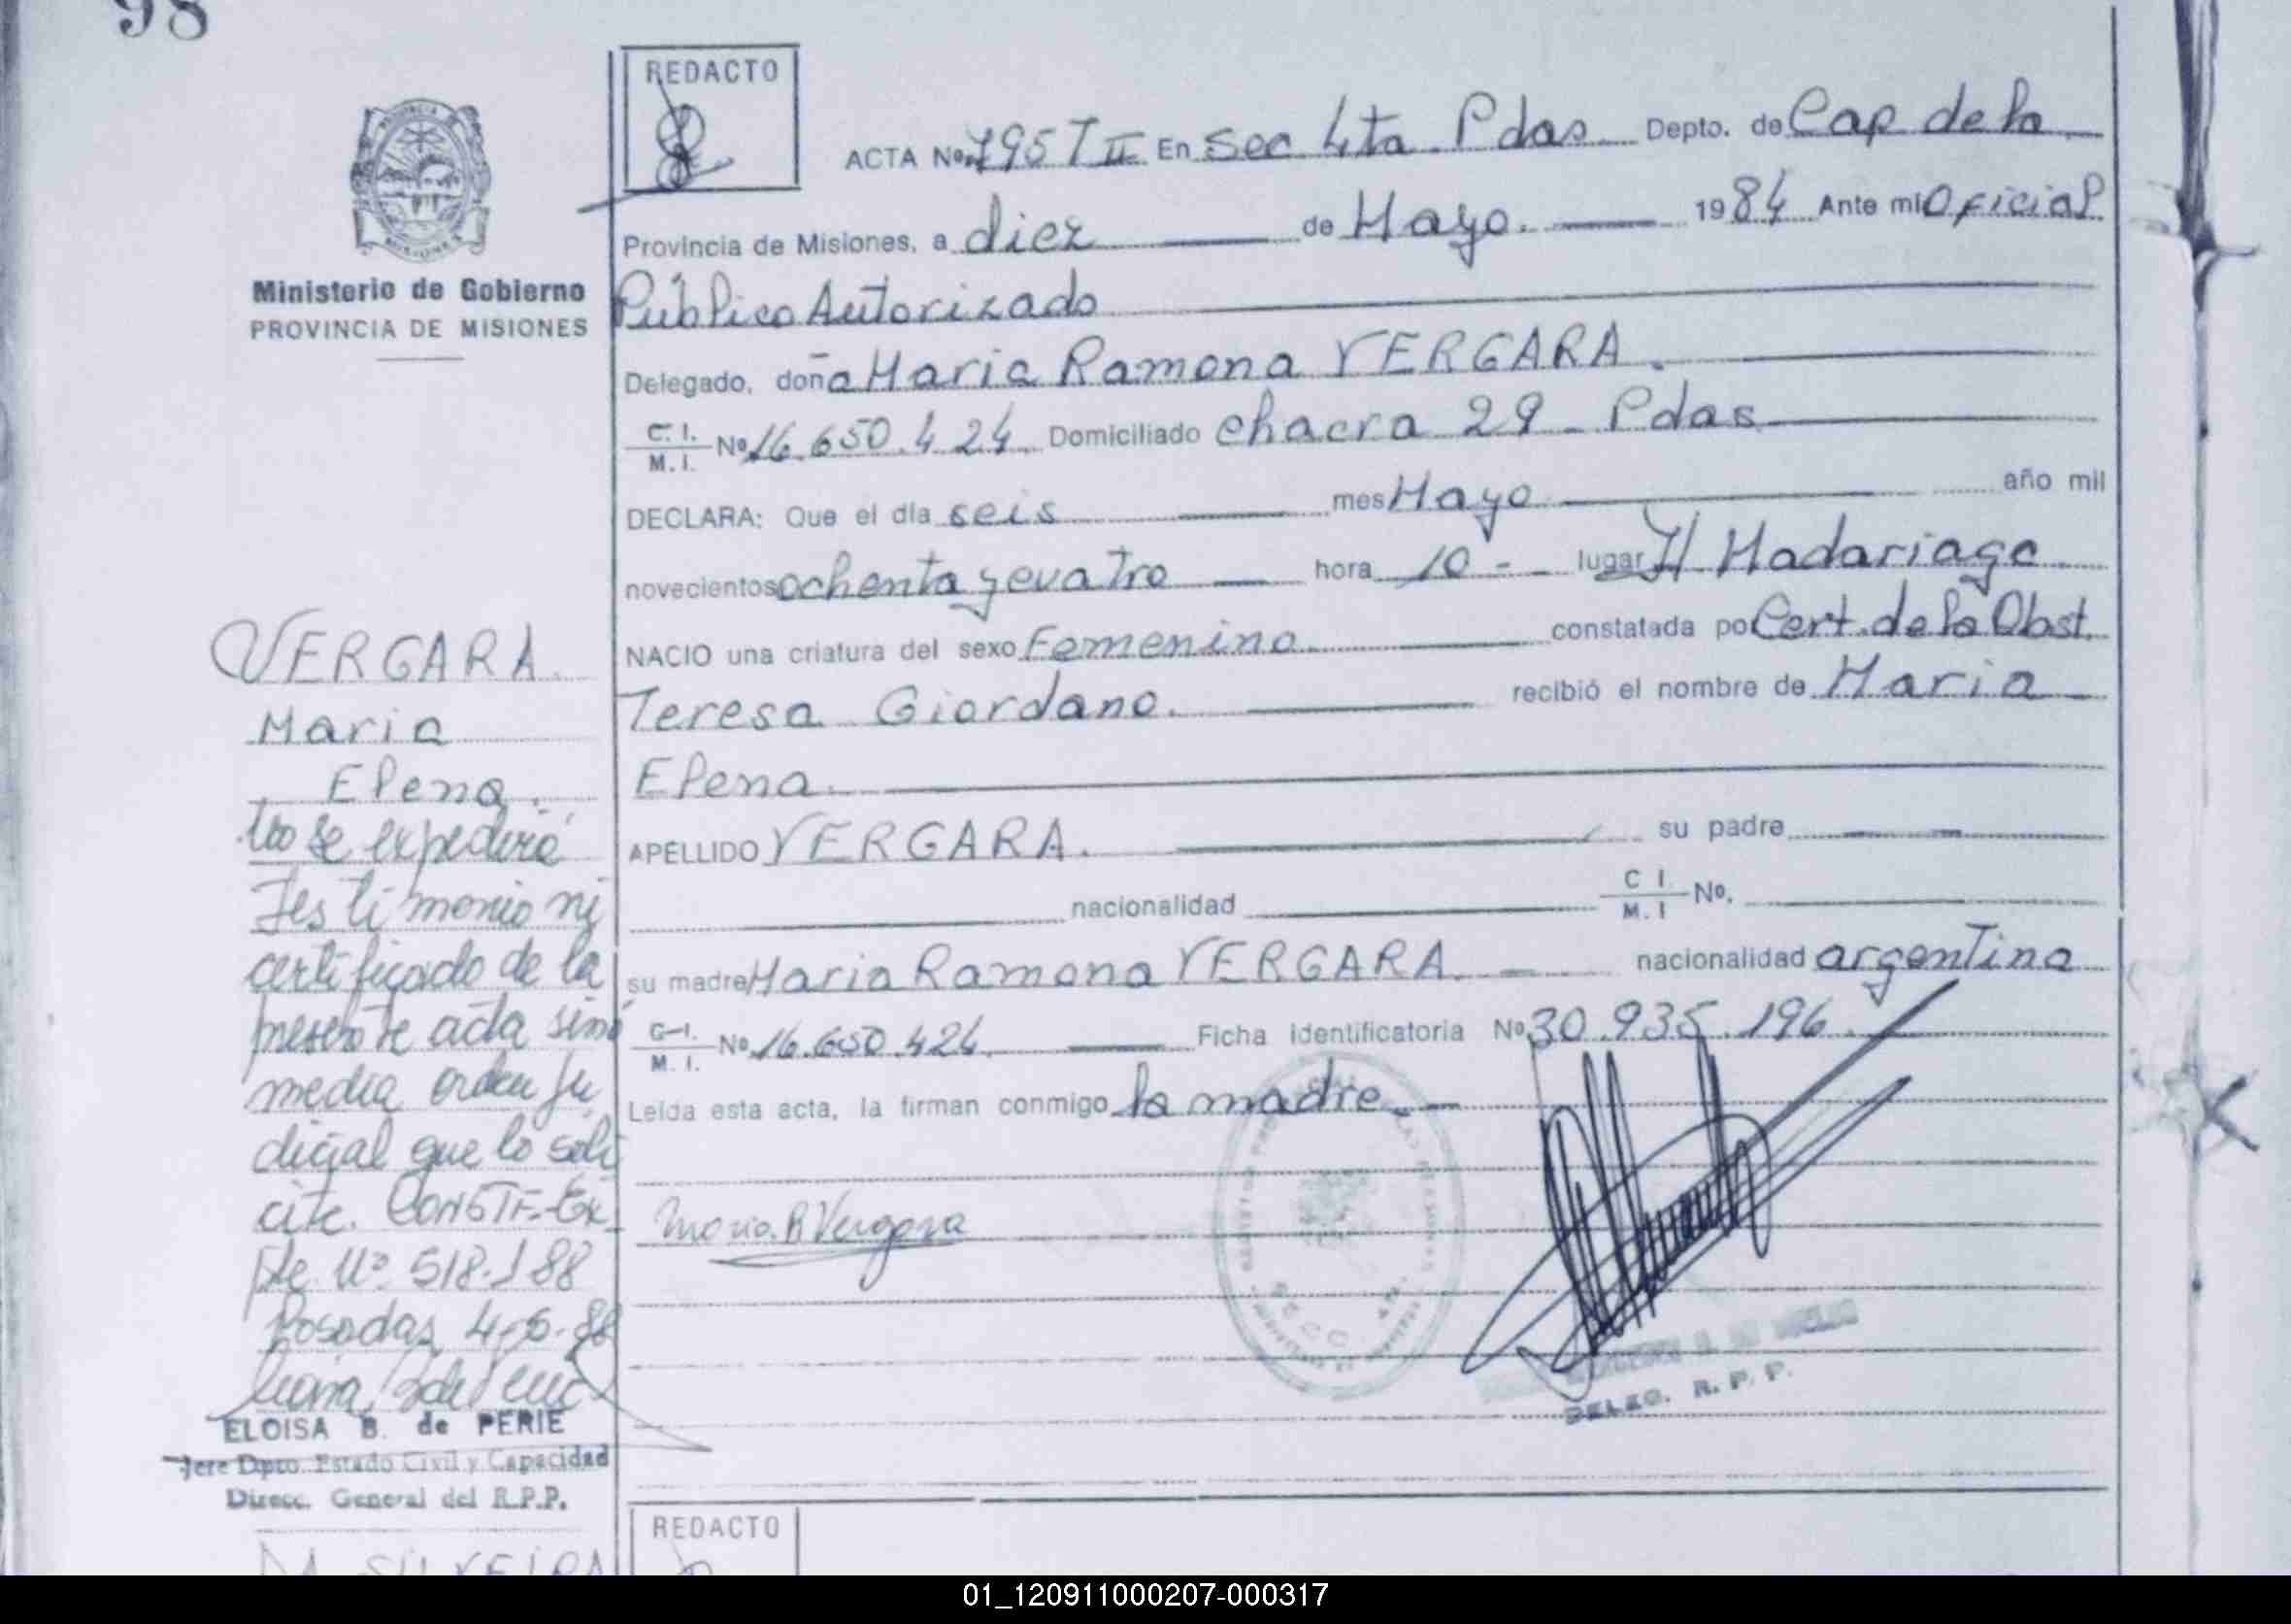 98
REDACTO
ACTA No. 795 T II En Sec 4ta Pdas Depto. de Cap de la
Provincia de Misiones, a diez de Mayo. 1984 Ante mi Oficial
Público Autorizado
Delegado, doña Maria Ramona VERGARA.
C. I. M. I. No 16.650.424. Domiciliado chacra 29 - Pdas
DECLARA: Que el día seis mes Mayo año mil
novecientos ochenta y cuatro hora 10 - lugar H Madariaga
NACIO una criatura del sexo Femenino constatada po Cert. de la Obst.
Teresa Giordano. recibió el nombre de Maria
Elena.
APELLIDO VERGARA. su padre
nacionalidad C I M. I No.
su madre Maria Ramona VERGARA. nacionalidad argentina
C-I. M. I. No 16.650.424. Ficha identificatoria No 30.935.196.
Leída esta acta, la firman conmigo la madre.
Maria. R Vergara
DELEG. R. P. P.
Ministerio de Gobierno
PROVINCIA DE MISIONES
VERGARA.
Maria
Elena.
No se expedirá
Testimonio ni
certificado de la
presente acta sino
media orden ju
dicial que lo soli
cite. CONSTE-Ex
pte. Nº 518.188
Posadas 4-5-88
ELOISA B. de PERIE
Jefe Dpto. Estado Civil y Capacidad
Direcc. General del R.P.P.
REDACTO
DA SILVEIRA
01_120911000207-000317